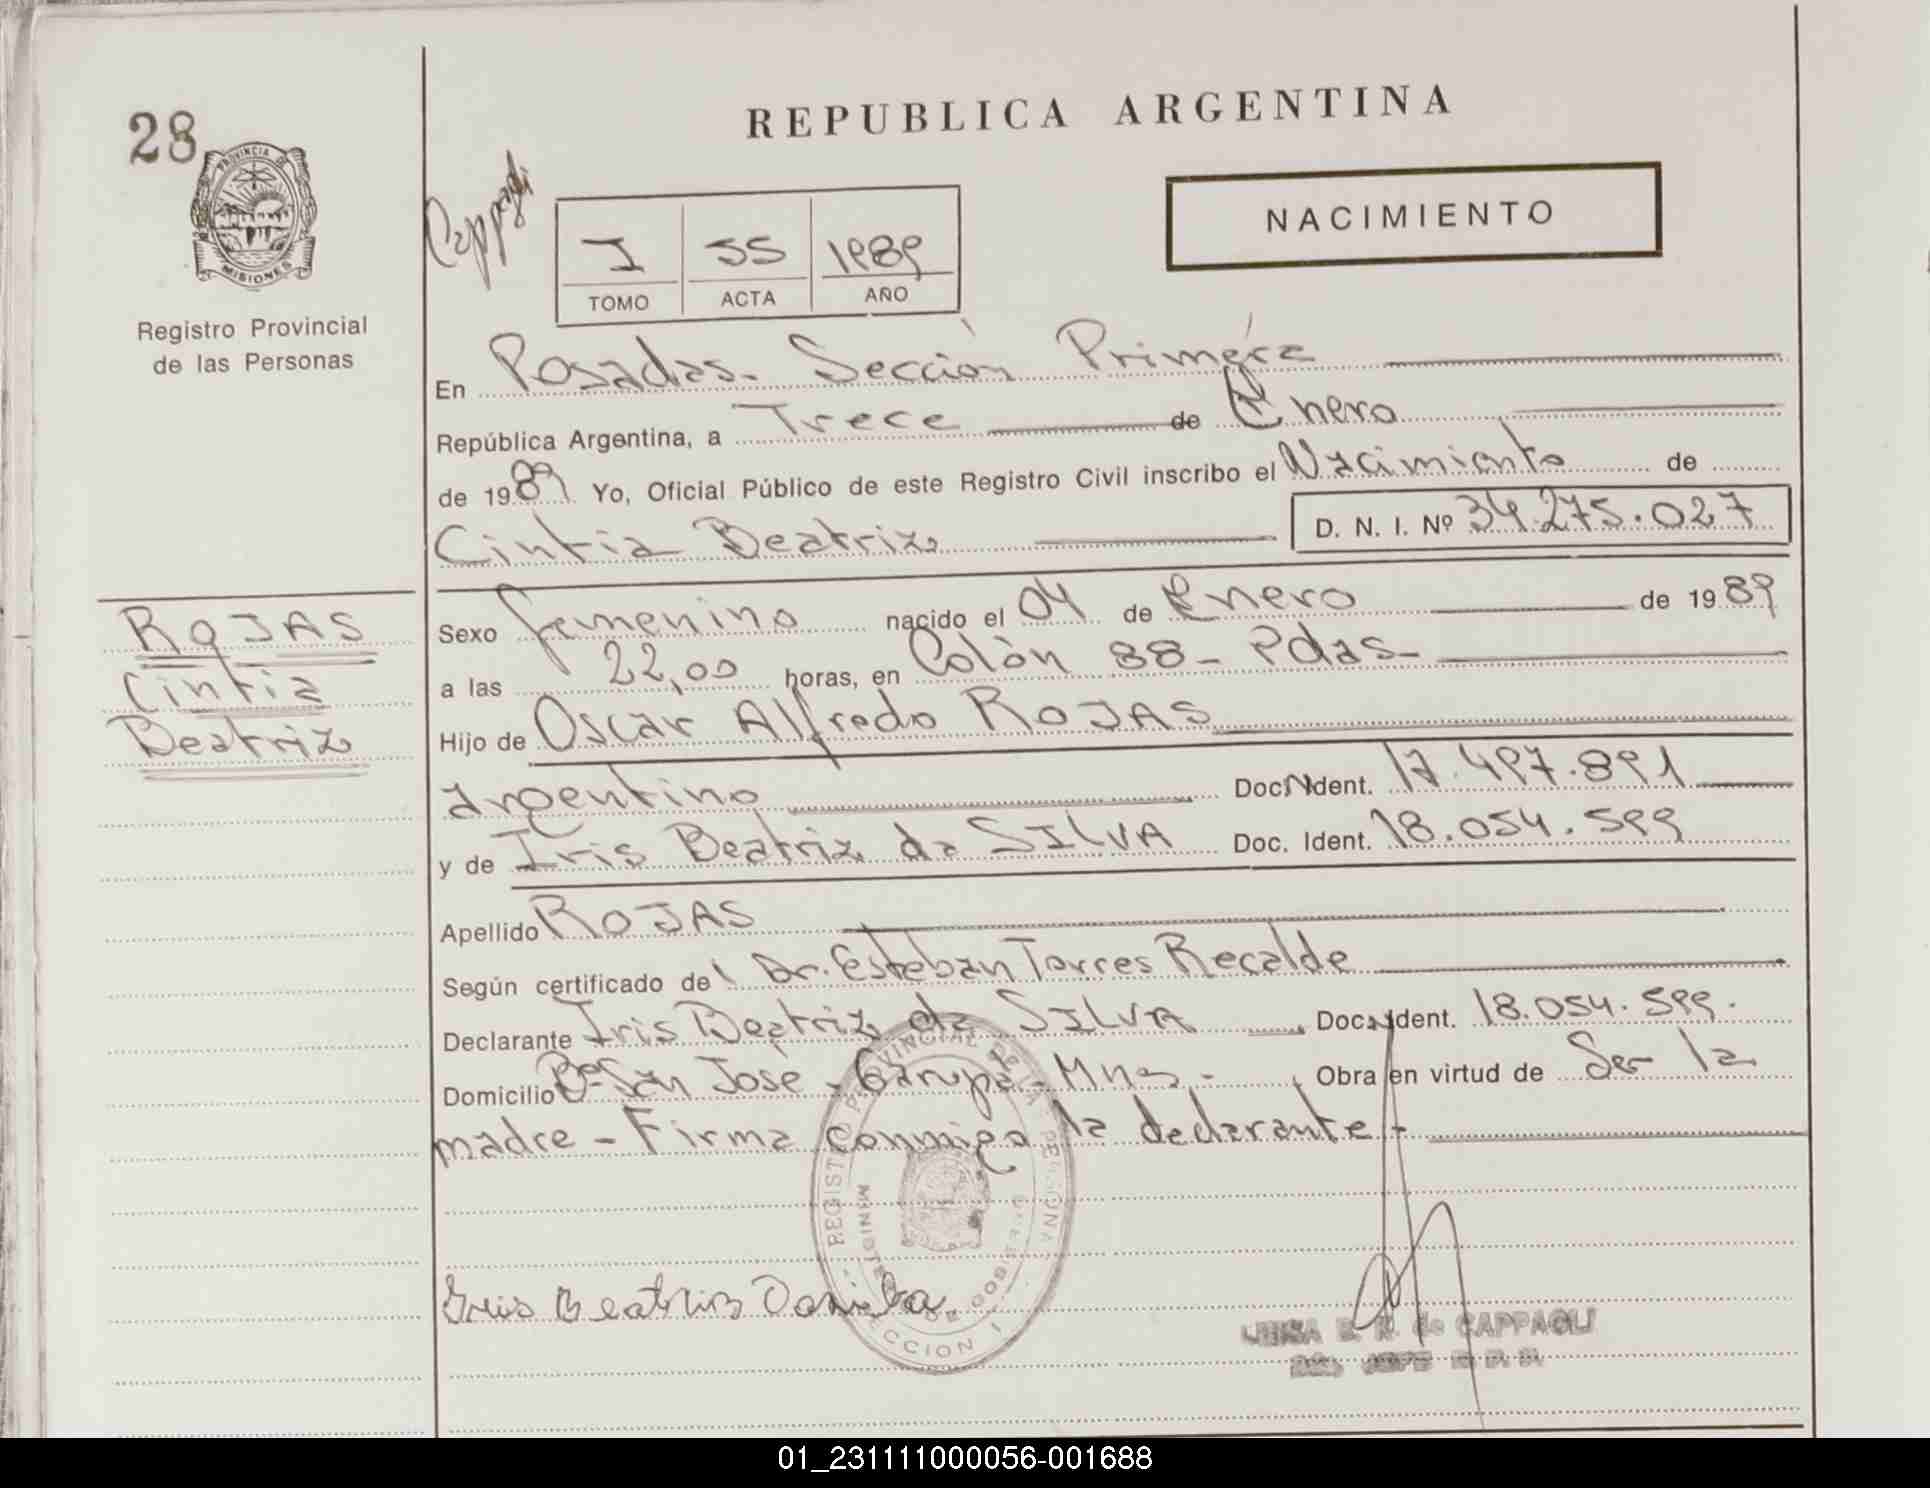 28
REPUBLICA ARGENTINA
PROVINCIA DE
MISIONES
Registro Provincial
de las Personas
Cappagli
I 55 1989
TOMO ACTA AÑO
NACIMIENTO
En Posadas. Sección Primera
República Argentina, a Trece de Enero
de 1989 Yo, Oficial Público de este Registro Civil inscribo el Nacimiento de
Cintia Beatriz D. N. I. Nº 34.275.027
ROJAS
Cintia
Beatriz
Sexo femenino nacido el 04 de Enero de 1989
a las 22,00 horas, en Colón 88 - Pdas -
Hijo de Oscar Alfredo ROJAS
argentino Doc. Ident. 17.497.891
y de Iris Beatriz da SILVA Doc. Ident. 18.054.599
Apellido ROJAS
Según certificado del Dr. Esteban Torres Recalde
Declarante Iris Beatriz da SILVA Doc. Ident. 18.054.599.
Domicilio Bº San José - Garupá - Mnes. - Obra en virtud de Ser la
madre - Firma conmigo la declarante -
REGISTRO PROVINCIAL DE LAS PERSONAS
MINISTERIO DE GOBIERNO
SECCION I
Iris Beatriz Dasilva
LUISA E. R. de CAPPAGLI
JEFE R. P. P.
01_231111000056-001688